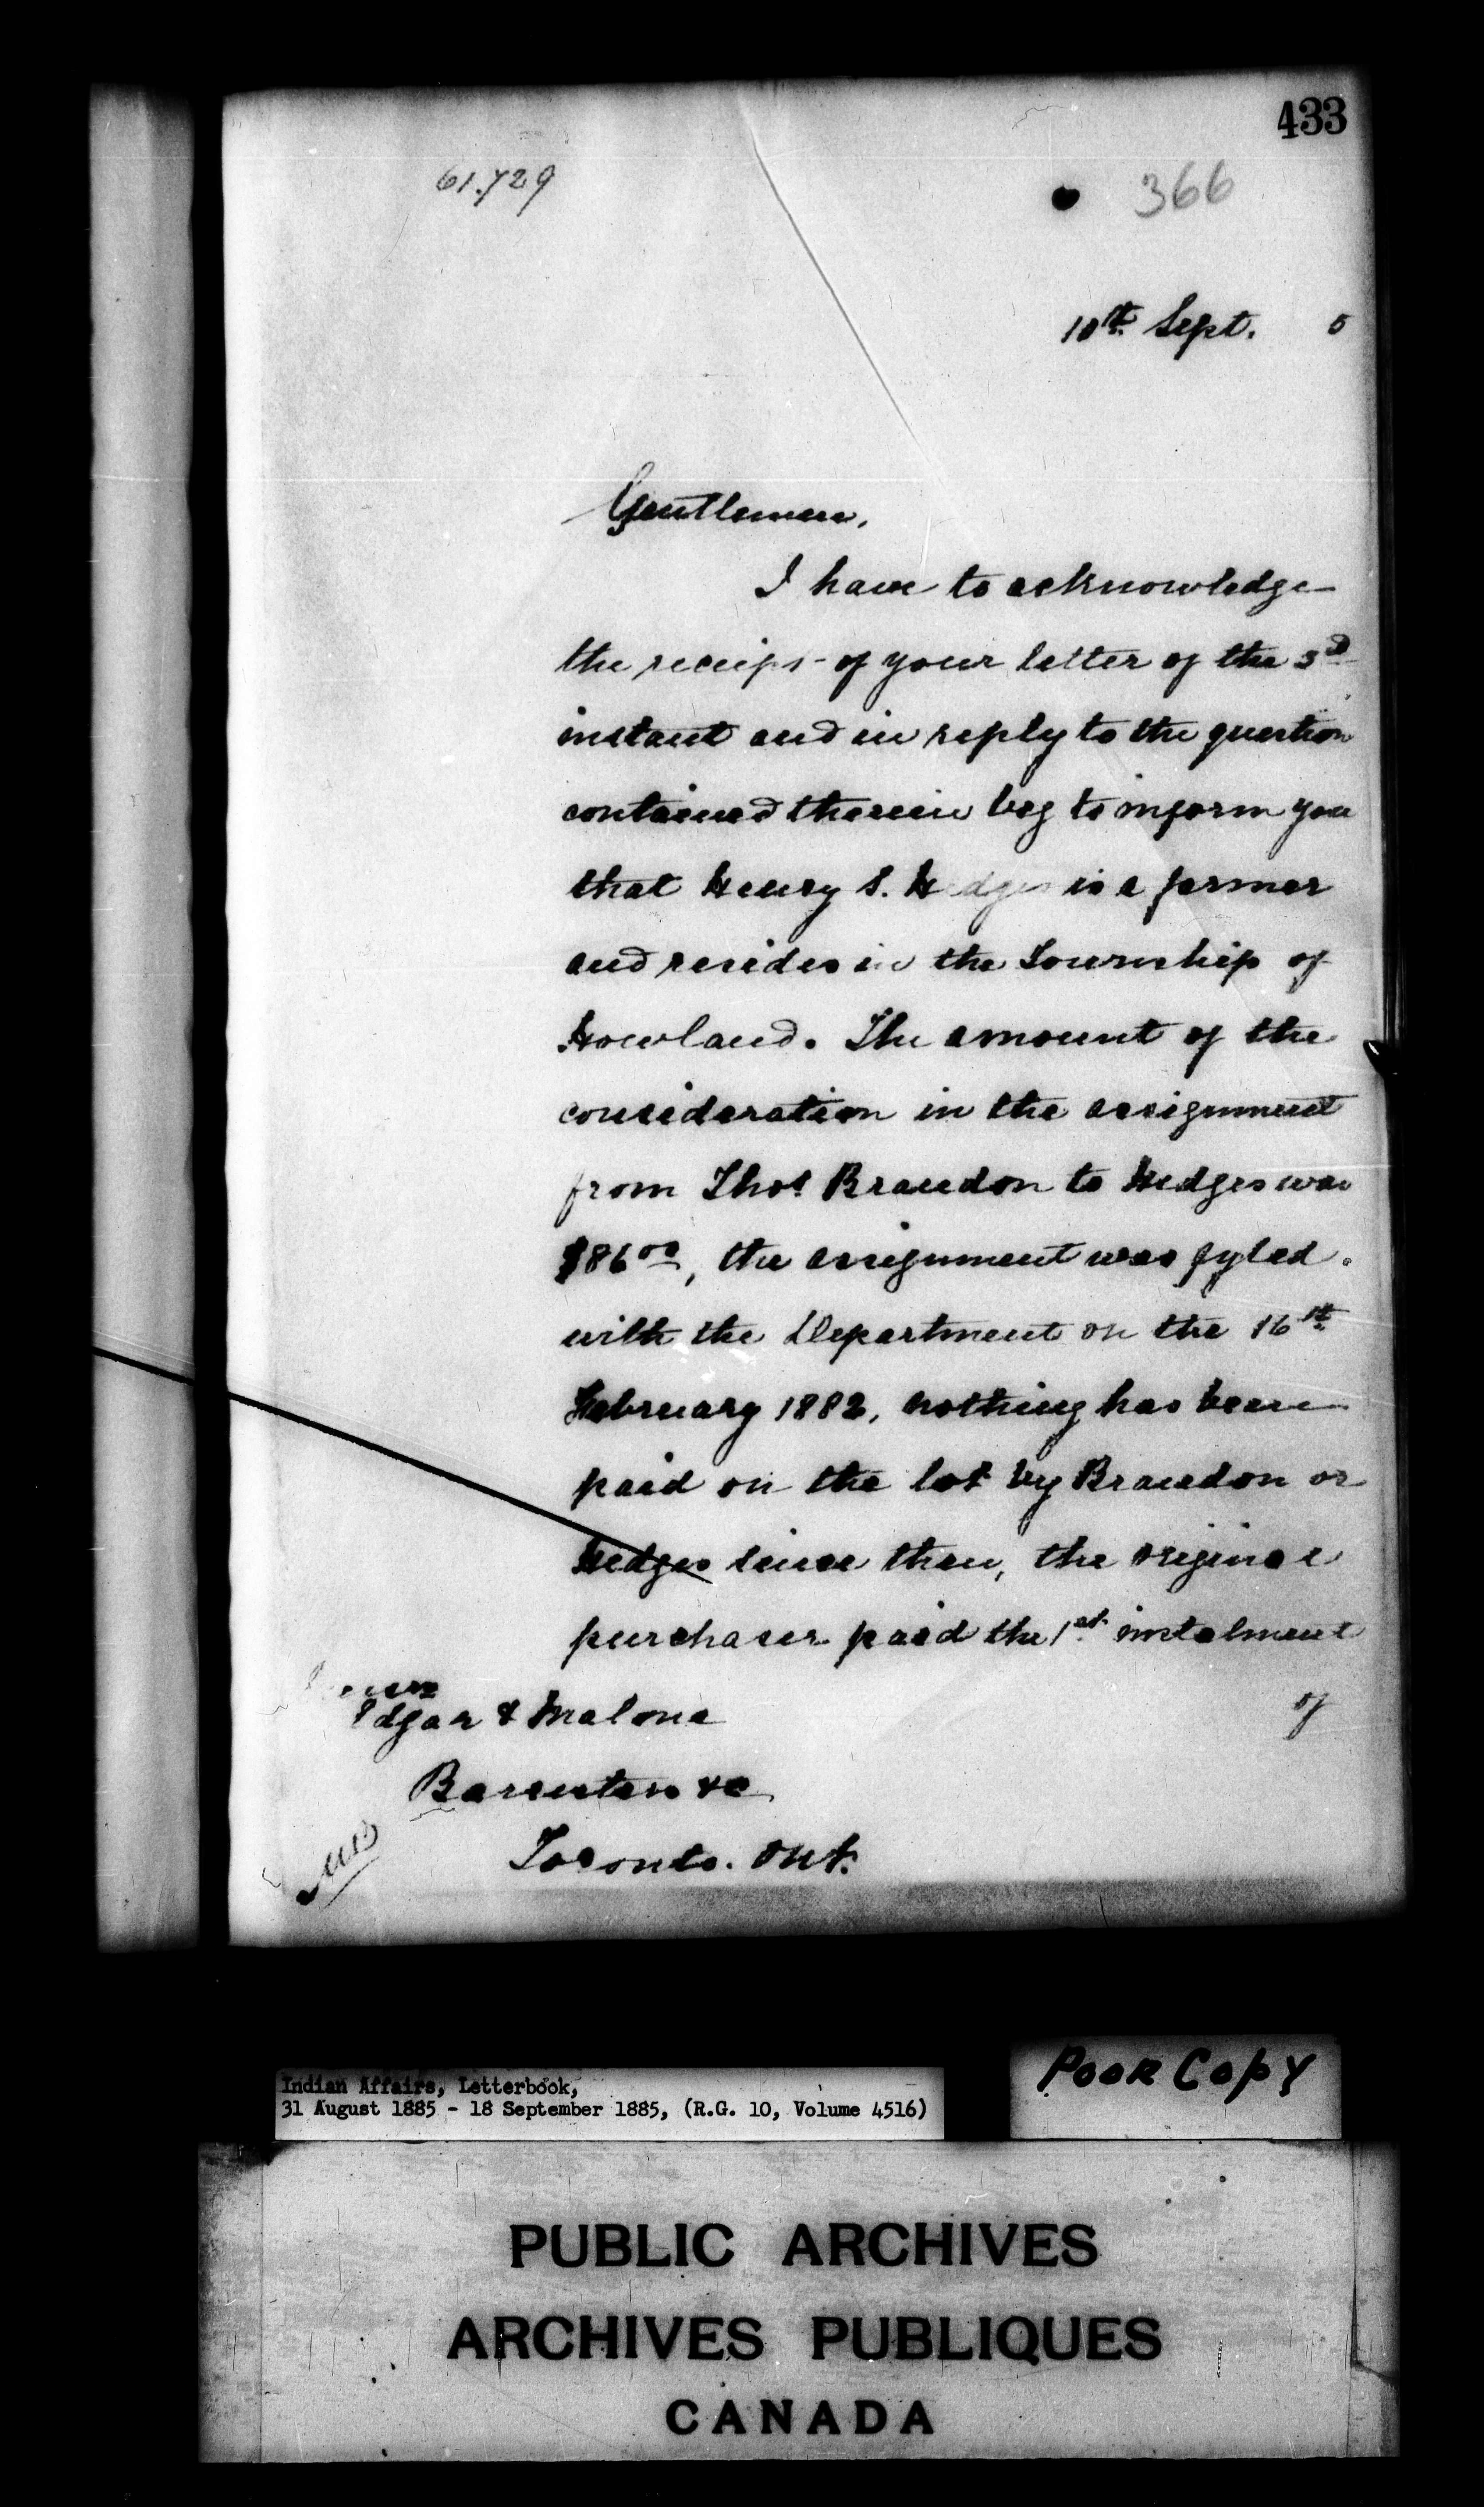 433
61.729
366
10th Sept. 5
Gentlemen,
I have to acknowledge
the receipt of your letter of the 3d
instant and in reply to the question
contained therein beg to inform you
that Henry S. Hedges is a farmer
and resides in the Township of
Howland. The amount of the
consideration in the assignment
from Thos Brandon to Hedges was
$86.00, the assignment was fyled
with the Department on the 16th
February 1882, nothing has been
paid on the lot by Brandon or
Hedges since then, the original
purchaser paid the 1st instalment
of
Edgar & Malone
Barristers &c
Toronto. Ont.
Indian Affairs, Letterbook,
31 August 1885 - 18 September 1885, (R.G. 10, Volume 4516)
Poor Copy
PUBLIC ARCHIVES
ARCHIVES PUBLIQUES
CANADA